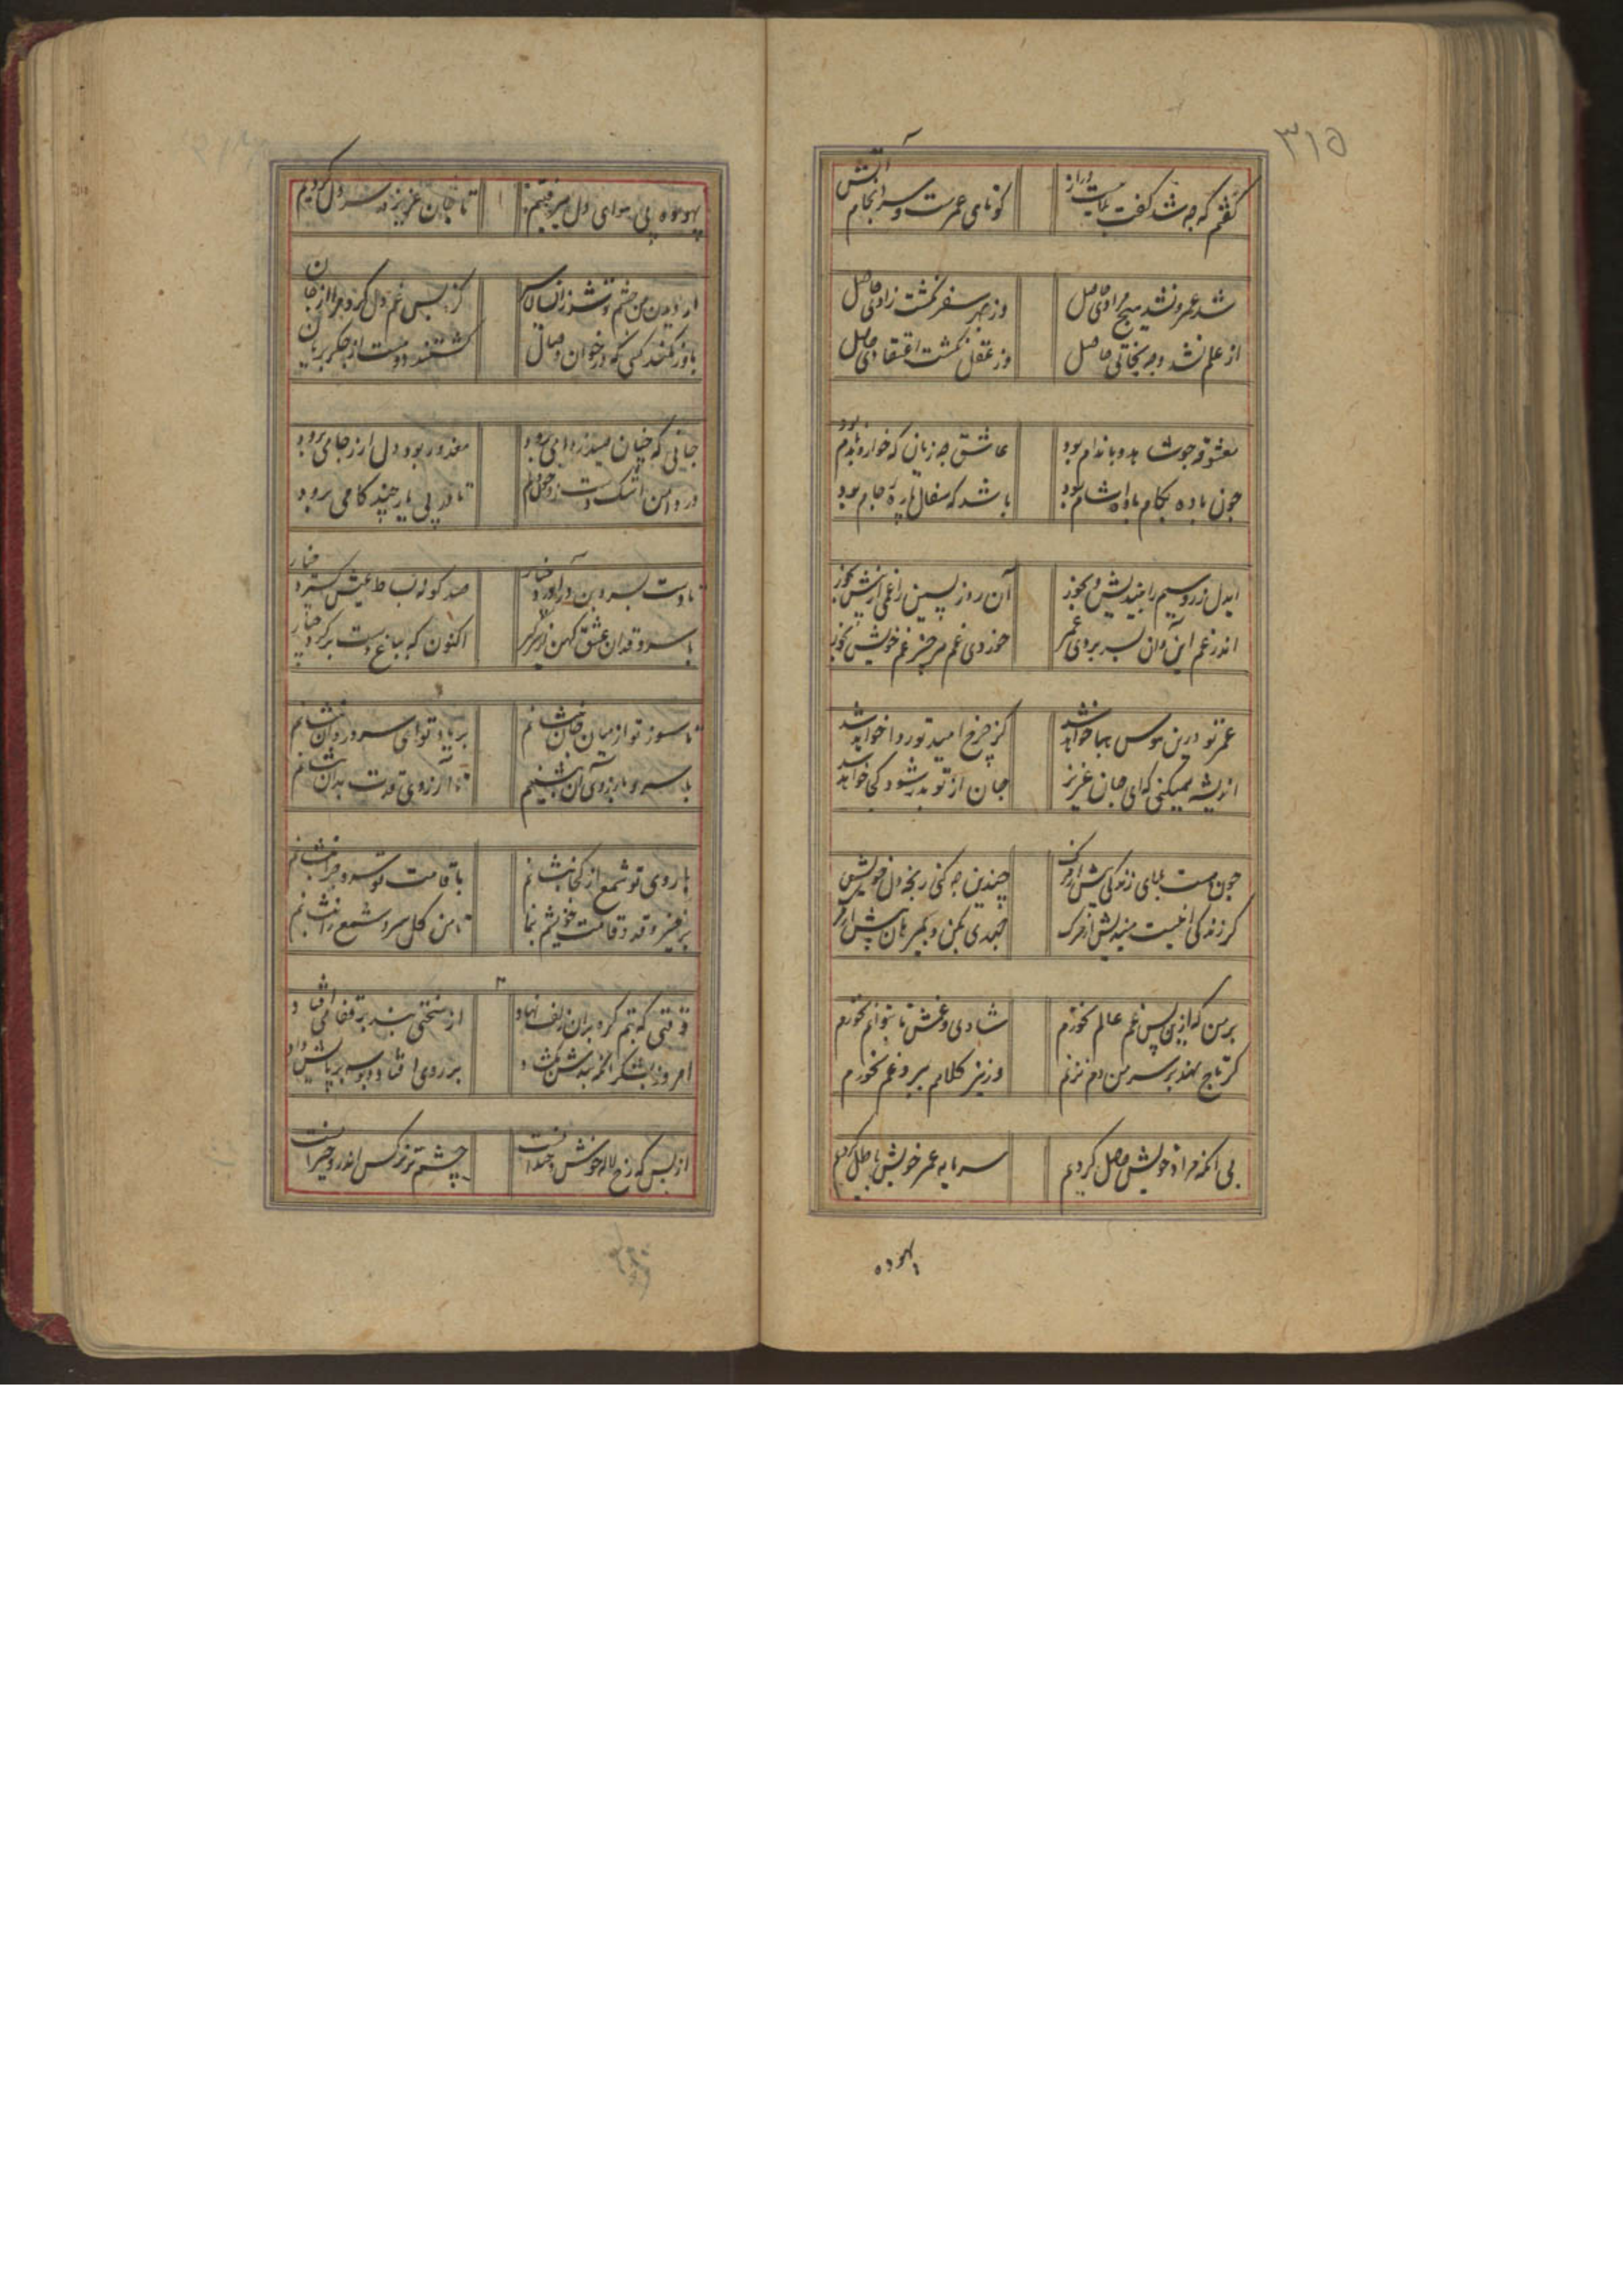 ۳۱۵
گفتم که چه شد گفت بلاییست دراز کوتاهی عمرست و سرانجام آتش
شد عمر و نشد هیچ مرادی حاصل وز بهر سفر نگشت زادی حاصل
از علم نشد وجه نجاتی حاصل وز عقل نگشت اعتقادی حاصل
معشوقه چو شاهد و باندام بود عاشق چه زیان که خوار و بدنام بود
چون باده بکام باده آشام بود باشد که سفال پاره جام بود
ایدل زر و سیم را میندیش و بخور آن روز پسین را غمی از پیش مخور
اندر غم این و آن بسر بردی عمر خوردی غم هر چیز غم خویش بخور
عمر تو درین هوس هبا خواهد شد کز چرخ امید تو روا خواهد شد
اندیشه نمیکنی که ای جان عزیز جان از تو بدر شود کجا خواهد شد
چون هست بلای زندگی بیش از مرگ چندین چه کنی رنجه دل خویش
گر زندگی اینست میندیش از مرگ جهدی بکن و بمیر هان پیش از مرگ
بر من که ازین پس غم عالم نخورم شادی و غمش تا بتوانم نخورم
گر تاج نهند بر سر من دم نزنم ور نیز کلاهم ببرد غم نخورم
بی آنکه مراد خویش حاصل کردیم سرمایه عمر خویش باطل کردیم
بیهوده
بیهوده پی هوای دل میرفتیم تا جان عزیز در سر دل کردیم
کز بس غم دل کرد مرا از جان
باور نکند کسی که در خوان وصال گشتند دو مست از جگر بریان
جانی که چنان میرود معذور بود دل ار ز جا می برود
در دامن اشک تا در پی یار چند گامی برود
تا دست بسرو بن در آورد خیار صد گونه بساط عیش گسترد خیار
با سرو قدان عشق کهن اکنون که بباغ دست
تا سوز تو از میان جان بنشانم بر یاد تو ای سرو روان بنشانم
با سرو و بآرزوی آن بنشینم تا آرزوی قدت بدان بنشانم
با روی تو شمع از کجا بنشانم با قامت تو سرو چرا بنشانم
برخیز و قد و قامت خویشم بنما تا من گل و سرو و شمع را بنشانم
وقتی که بتم گره بران زلف نهاد از سختی بند بر قفا می افتاد
امروز بشکر آنکه بندش بگشاد بر روی افتاد و بوسه بر پایش داد
از بس که رخ لاله خوش و خندانست چشم تر نرگس اندرو حیرانست